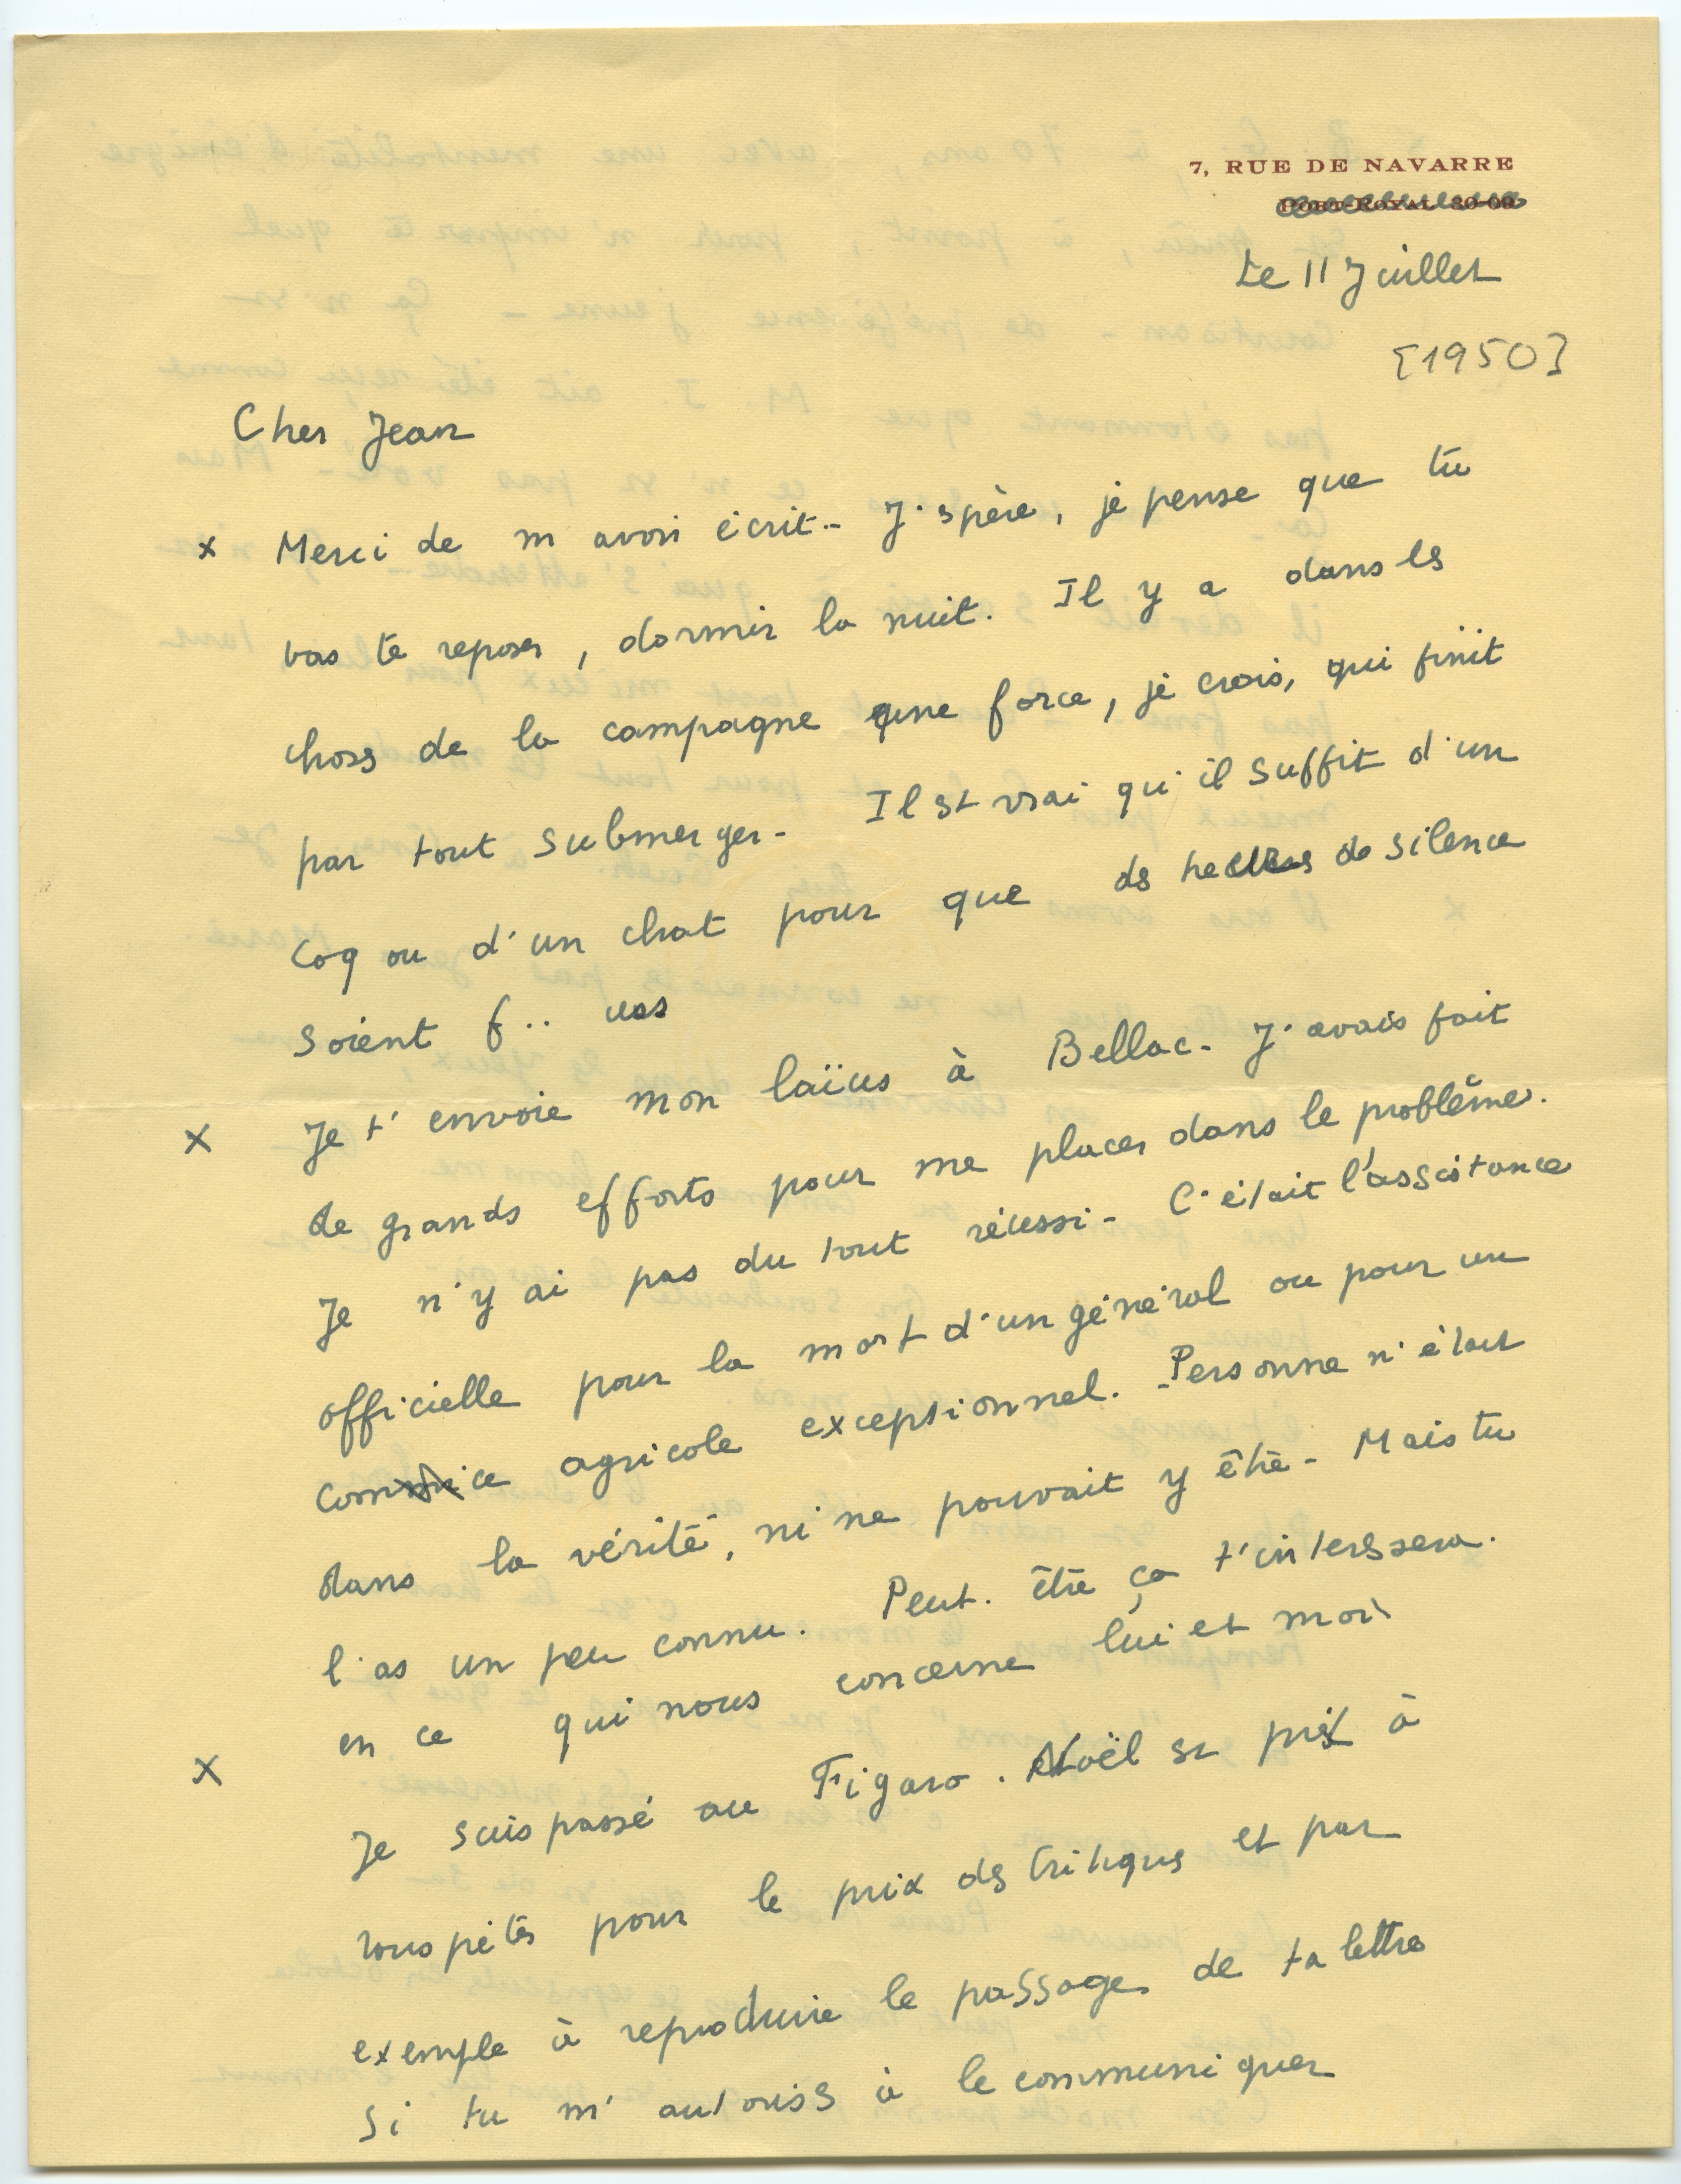 7, RUE DE NAVARRE
PORT-ROYAL 30-09
Le 11 Juillet
[1950]
Cher Jean
x Merci de m'avoir écrit - J'espère, je pense que tu
vas te reposer, dormir la nuit. Il y a dans les
choses de la campagne une force, je crois, qui finit
par tout submerger - Il est vrai qu'il suffit d'un
coq ou d'un chat pour que des heures de silence
soient f.. ues
x Je t'envoie mon laïus à Bellac - J'avais fait
de grands efforts pour me placer dans le problème.
Je n'y ai pas du tout réussi - C'était l'assistance
officielle pour la mort d'un général ou pour un
comice agricole exceptionnel. - Personne n'était
dans la vérité, ni ne pouvait y être - Mais tu
l'as un peu connu. Peut-être ça t'intéressera.
en ce qui nous concerne lui et moi
x Je suis passé au Figaro. Noël est prêt à
rouspéter pour le prix des Critiques et par
exemple à reproduire le passage de ta lettre
si tu m'autorises à le communiquer